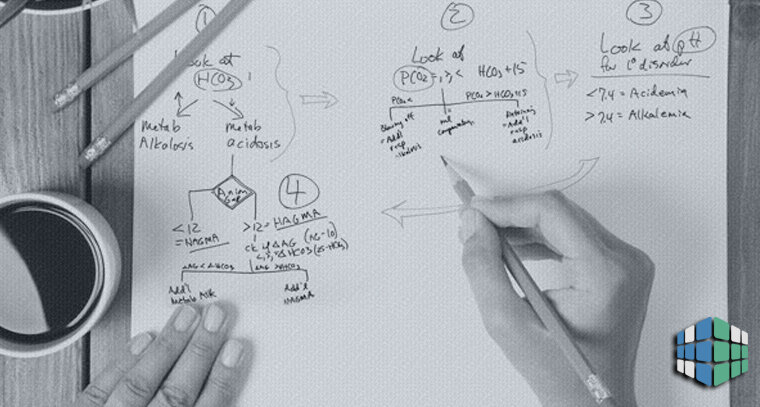 1
Look at
HCO3
Metab
Alkalosis
metab
acidosis
Anion
Gap
4
<12
= NAGMA
>12 = HAGMA
ck if ΔAG (AG-10)
<,>,= ΔHCO3 (25-HCO3)
ΔAG < ΔHCO3
ΔAG > ΔHCO3
Add'l
Metab Alk
Add'l
NAGMA
2
Look at
PCO2 =,>,< HCO3+15
PCO2<
PCO2 > HCO3+15
Blowing off
= Add'l
resp
alkalosis
=
nml
Retaining
= Add'l
resp
acidosis
3
Look at pH
for 1° disorder
<7.4 = Acidemia
>7.4 = Alkalemia